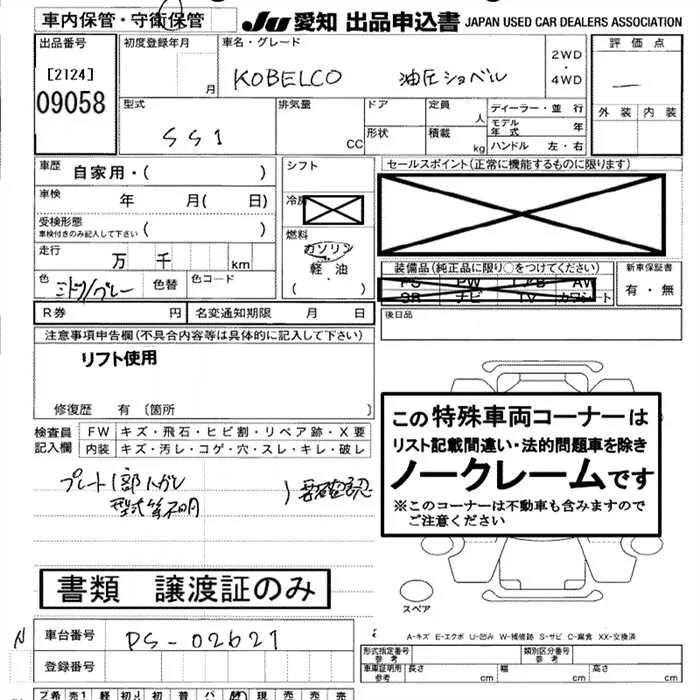 車内保管・守衛保管
JU 愛知 出品申込書 JAPAN USED CAR DEALERS ASSOCIATION
出品番号
[2124]
09058
初度登録年月
月
車名・グレード
KOBELCO 油圧ショベル
2WD
・
4WD
評価点
—
外装 内装
型式
SS1
排気量
CC
ドア
形状
定員
人
積載
kg
ディーラー・並行
モデル年式 年
ハンドル 左・右
車歴
自家用・( )
車検
年 月( 日)
受検形態
車検付きのみ記入して下さい ( )
走行
万 千 km
色
ミドリ/グレー
色替
色コード
シフト
冷房
燃料
ガソリン
軽・油
( )
セールスポイント(正常に機能するものに限ります)
装備品(純正品に限り○をつけてください)
PS PW エアB AW
SR ナビ TV カワシート
新車保証書
有・無
R券 円
名変通知期限 月 日
後日品
注意事項申告欄(不具合内容等は具体的に記入して下さい)
リフト使用
修復歴 有〔箇所 〕
検査員
記入欄
FW キズ・飛石・ヒビ割・リペア跡・X要
内装 キズ・汚レ・コゲ・穴・スレ・キレ・破レ
プレート1部
型式等不明
)要確認
この特殊車両コーナーは
リスト記載間違い・法的問題車を除き
ノークレームです
※このコーナーは不動車も含みますので
ご注意ください
書類 譲渡証のみ
スペア
A-キズ E-エクボ U-凹み W-補修跡 S-サビ C-腐食 XX-交換済
N
車台番号
PS-02621
登録番号
形式指定番号
参考
類別区分番号
参考
車庫証明用
参考
長さ cm
幅 cm
高さ cm